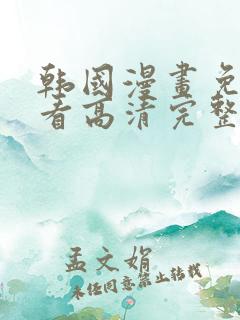 韩國漫畫免
看高清完整
孟文娟
未经同意禁止转载